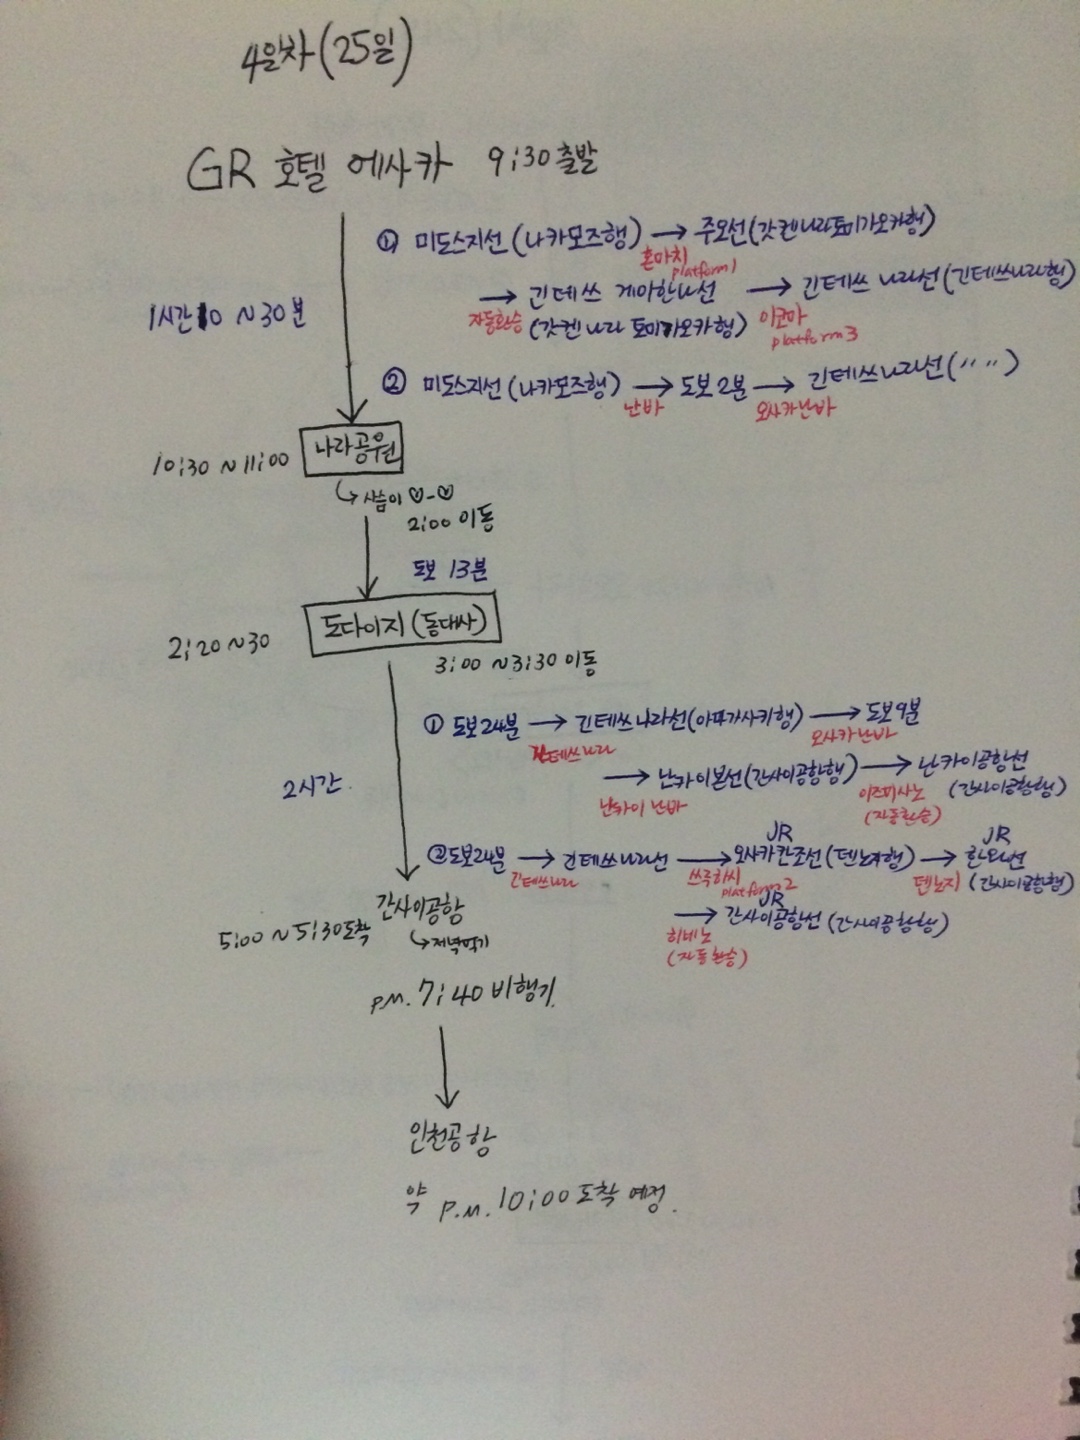 4일차(25일)
GR 호텔 에사카 9:30 출발
① 미도스지선(나카모즈행) → 주오선(갓켄나라토미가오카행)
혼마치
platform1
1시간10 ~30분
→ 긴테쓰 게이한나선 → 긴테쓰 나라선(긴테쓰나라행)
자동환승 (갓켄 나라 토미가오카행) 이코마
platform3
② 미도스지선(나카모즈행) → 도보 2분 → 긴테쓰나라선(〃〃)
난바 오사카난바
10:30 ~11:00 나라공원
↳ 사슴이 ♡-♡
2:00 이동
도보 13분
도다이지(동대사)
2:20 ~30
3:00 ~3:30 이동
① 도보24분 → 긴테쓰나라선(아마가사키행) → 도보9분
긴테쓰나라 오사카난바
2시간
→ 난카이본선(간사이공항행) → 난카이공항선
난카이 난바 이즈미사노 (간사이공항행)
(자동환승)
JR JR
②도보24분 → 긴테쓰나라선 → 오사카칸조선(텐노지행) → 한와선
긴테쓰나라 쓰루하시 텐노지 (간사이공항행)
platform2
JR
→ 간사이공항선(간사이공항행)
히네노
(자동환승)
간사이공항
5:00 ~5:30도착 ↳저녁먹기
p.m. 7:40 비행기
인천공항
약 p.m. 10:00 도착 예정.